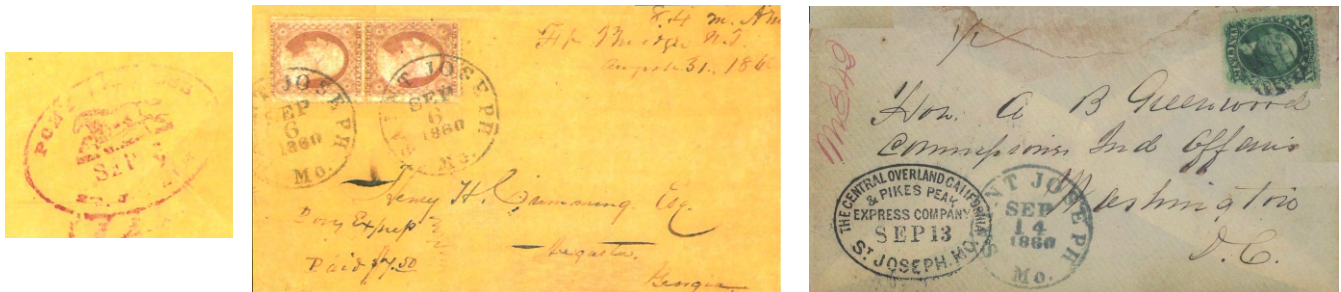 PONY EXPRESS
SEP
ST. J
Ft Bridger N.T.
August 31, 186
SAINT JOSEPH
SEP
6
1860
Mo.
SAINT JOSEPH
SEP
6
1860
Mo.
Henry H. Cumming Esq.
Pony Express
Paid $7.50
Augusta,
Georgia
Hon. A B Greenwood
Commissioner Ind Affairs
Washington
D. C.
THE CENTRAL OVERLAND CALIFORNIA
& PIKES PEAK
EXPRESS COMPANY
SEP 13
ST. JOSEPH. MO.
SAINT JOSEPH
SEP
14
1860
Mo.